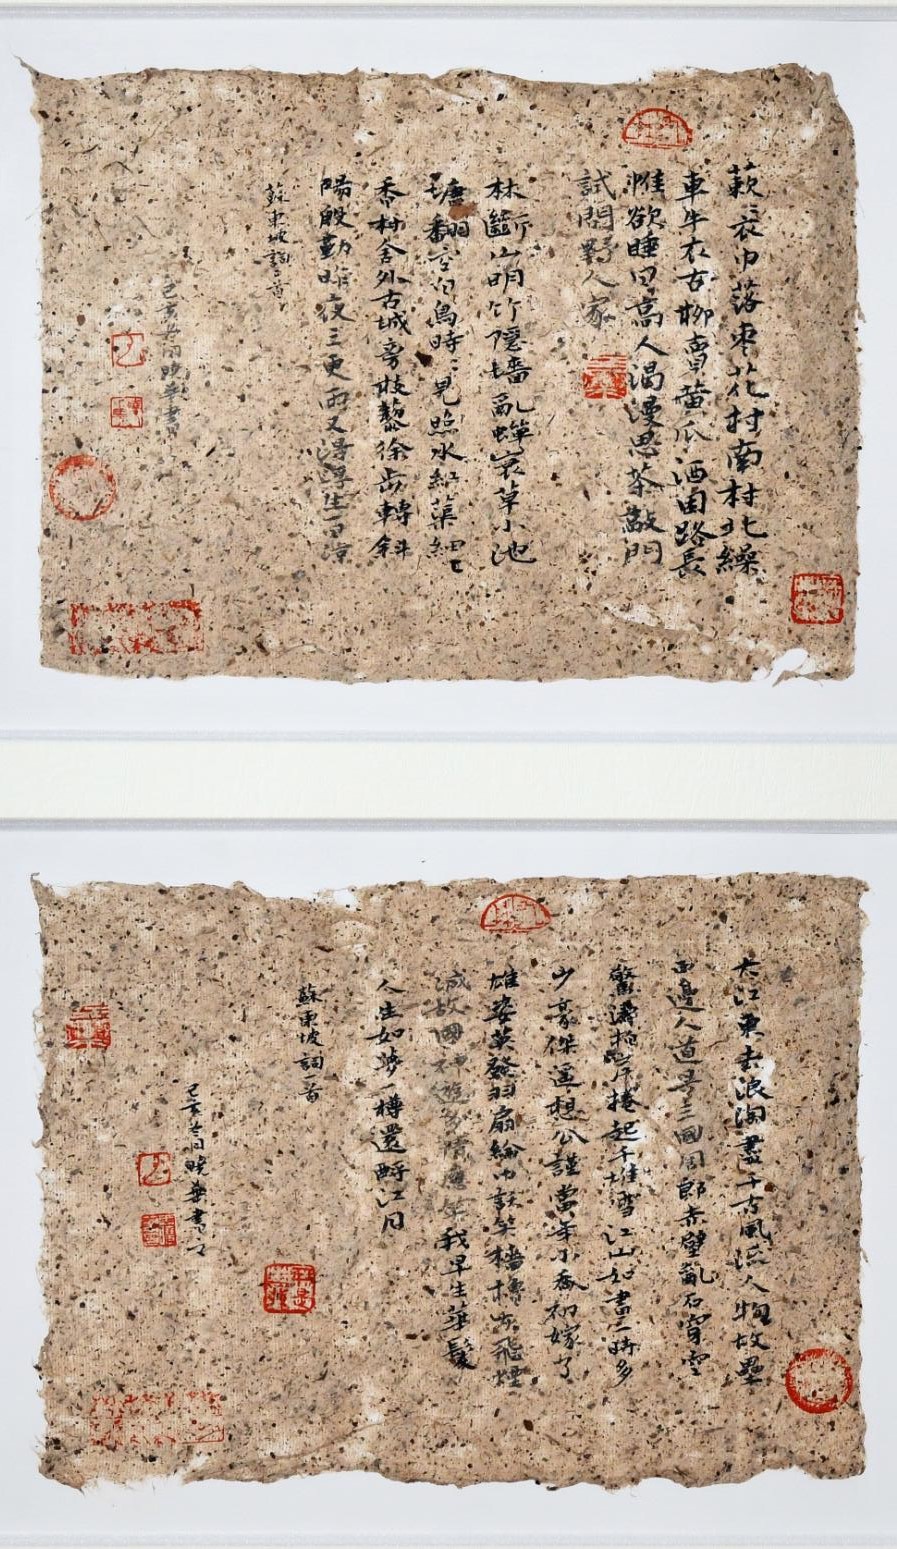 蔌〻衣巾落棗花村南村北繰
車牛衣古柳賣黃瓜酒困路長
惟欲睡日高人渴漫思茶敲門
試問野人家
林斷山明竹隱墻亂蟬衰草小池
塘翻空白鳥時〻見照水紅蕖細〻
香村舍外古城旁杖藜徐步轉斜
陽殷勤昨夜三更雨又得浮生一日涼
蘇東坡詞二首
己亥春月曉華書
大江東去浪淘盡千古風流人物故壘
西邊人道是三國周郎赤壁亂石穿空
驚濤拍岸捲起千堆雪江山如畫一時多
少豪傑遙想公謹當年小喬初嫁了
雄姿英發羽扇綸巾談笑檣櫓灰飛煙
滅故國神遊多情應笑我早生華髮
人生如夢一樽還酹江月
蘇東坡詞一首
己亥春月曉華書